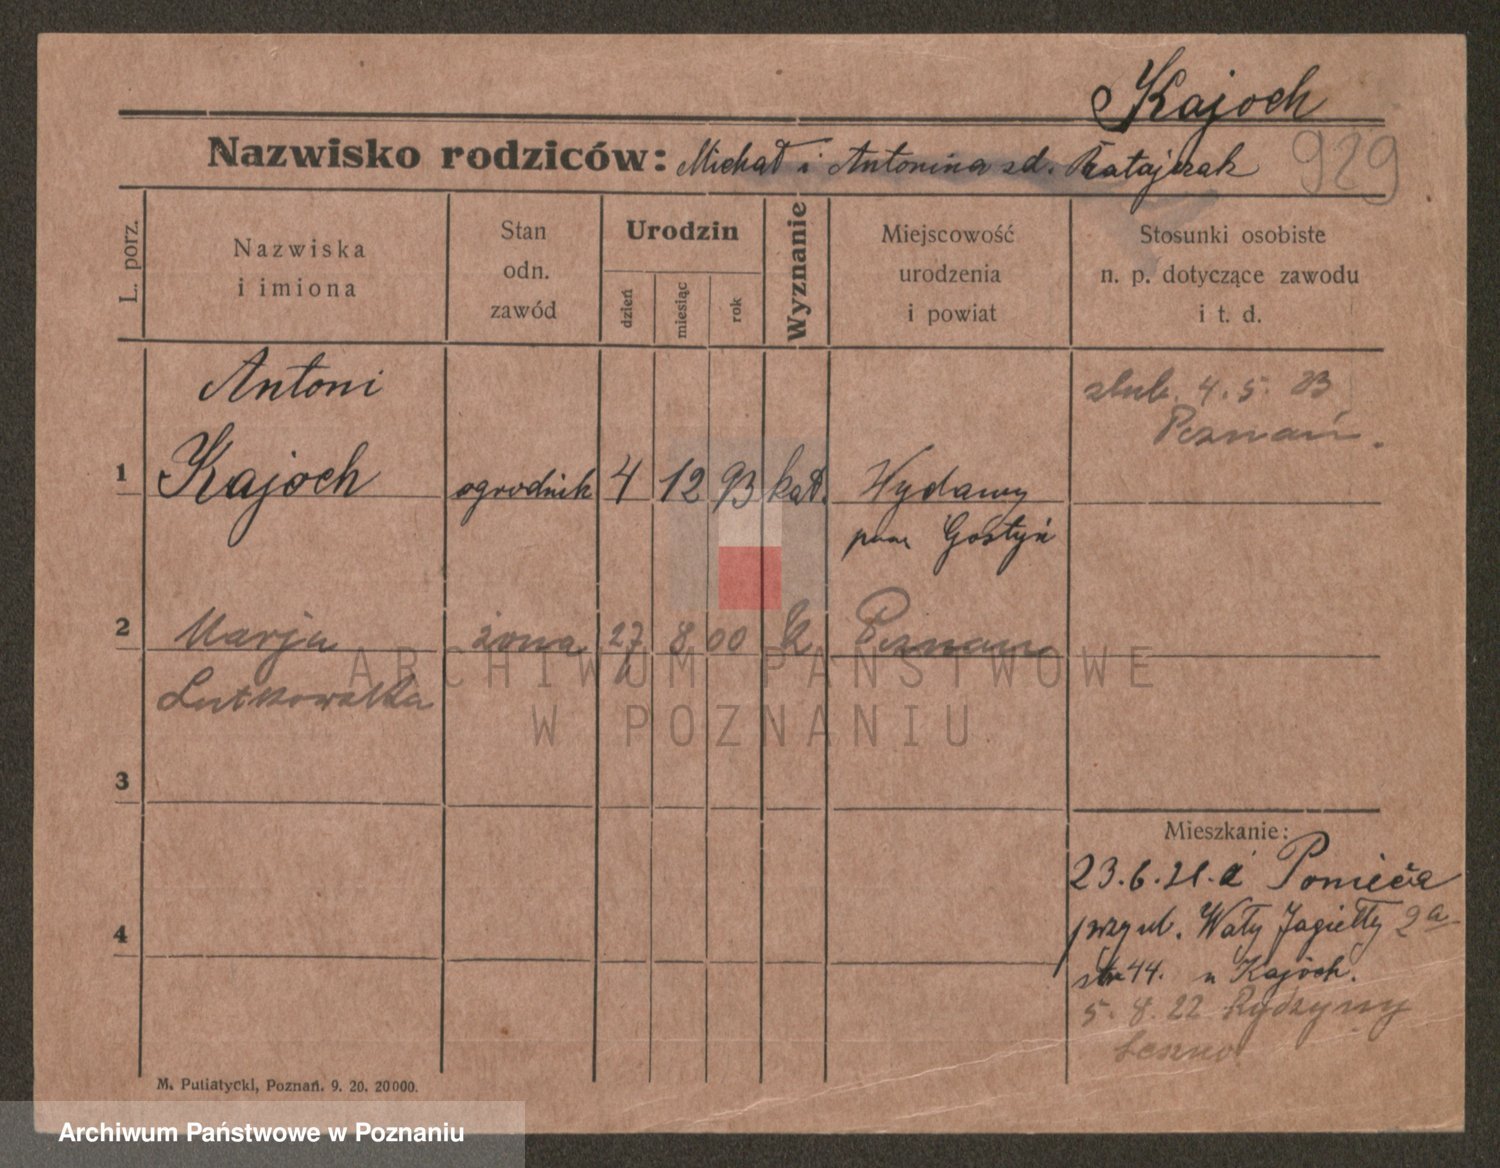 Kajoch
Nazwisko rodziców: Michał i Antonina zd. Ratajczak
929
L. porz.
Nazwiska
i imiona
Stan
odn.
zawód
Urodzin
dzień
miesiąc
rok
Wyznanie
Miejscowość
urodzenia
i powiat
Stosunki osobiste
n. p. dotyczące zawodu
i t. d.
Antoni
1 Kajoch ogrodnik 4 12 93 kat. Wydawy
pow Gostyń
ślub. 4. 5. 23
Poznań.
2 Marja żona 27 8 00 k Poznań
Lutkowska
3
4
Mieszkanie:
23.6.21. a Ponieca
przy ul. Wały Jagiełły 2a
str 44. u Kajoch.
5. 8. 22 Rydzyny
Leszno
M. Putiatycki, Poznań. 9. 20. 20000.
ARCHIWUM PAŃSTWOWE
W POZNANIU
Archiwum Państwowe w Poznaniu